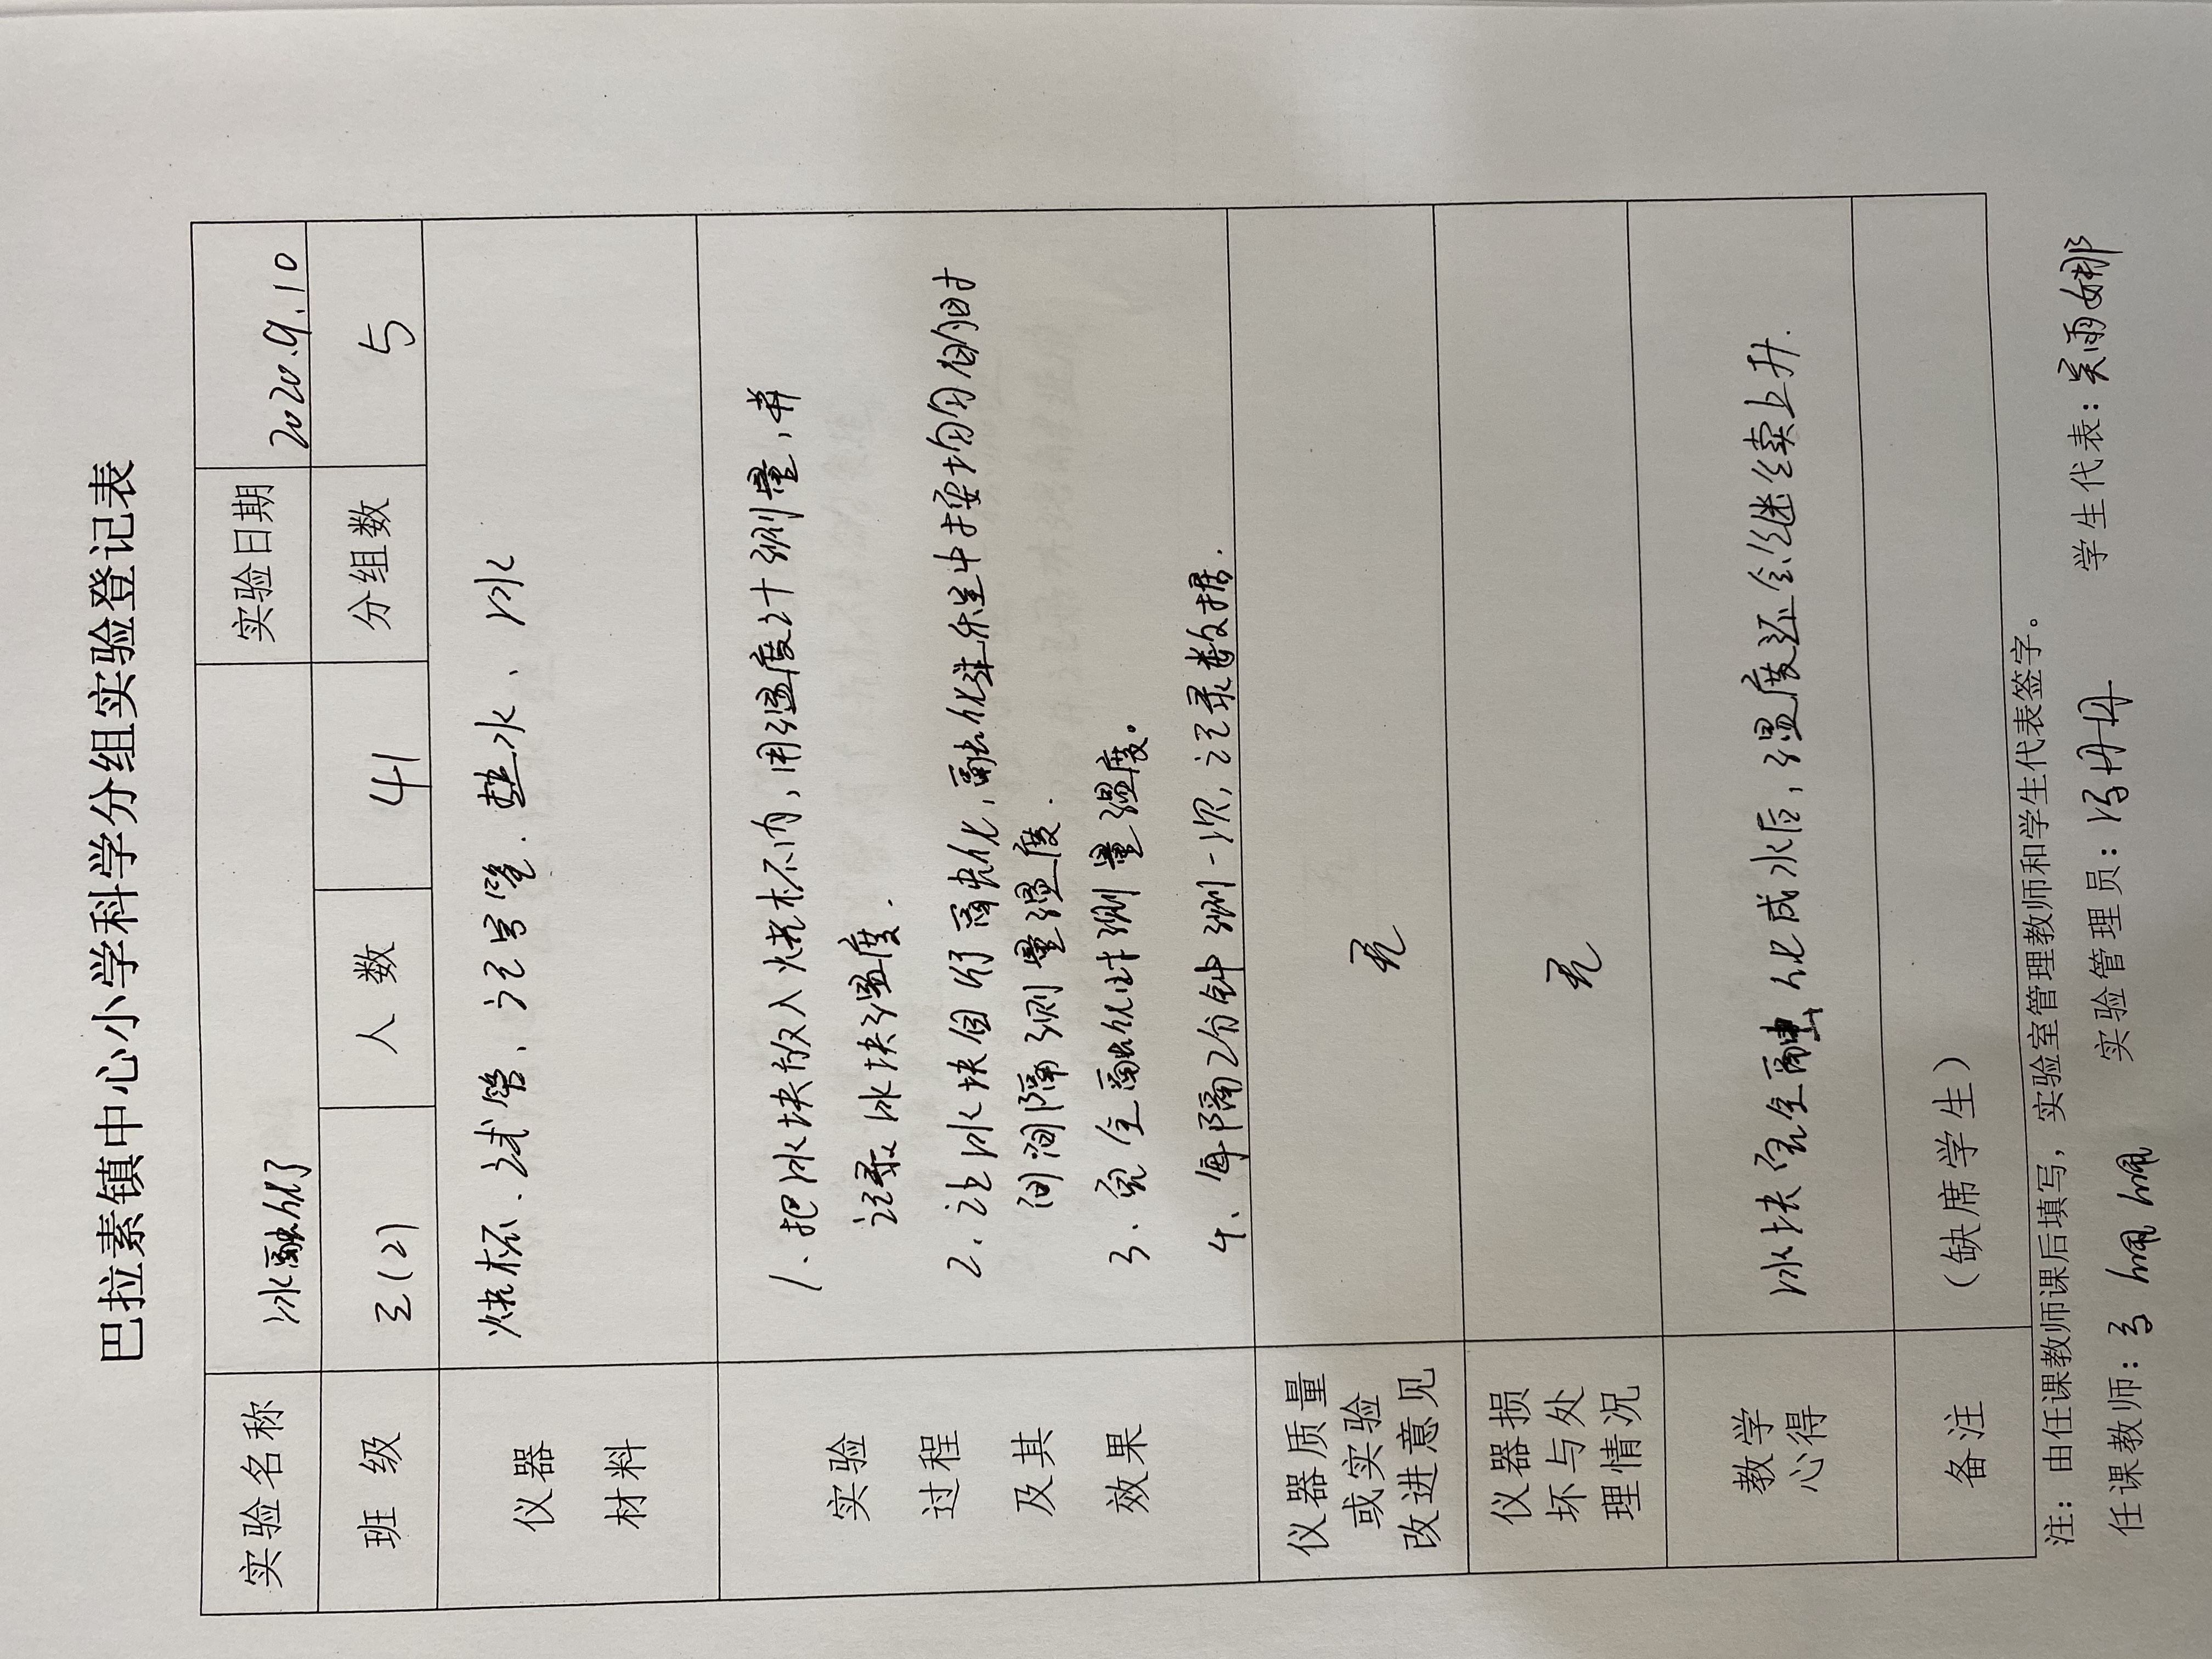 巴拉素镇中心小学科学分组实验登记表
实验名称 冰融化了 实验日期 2020.9.10
班 级 三(2) 人 数 41 分组数 5
仪器 材料 烧杯、试管、记号笔、热水、冰
实验 过程 及其 效果
1、把冰块放入烧杯内,用温度计测量,并
记录冰块温度.
2、让冰块自行融化,融化过程中按均匀的时
间间隔测量温度.
3、完全融化时测量温度。
4、每隔2分钟测一次,记录数据.
仪器质量 或实验 改进意见 无
仪器损 坏与处 理情况 无
教学 心得 冰块完全融化成水后,温度还会继续上升.
备注 (缺席学生)
注:由任课教师课后填写,实验室管理教师和学生代表签字。
任课教师: 实验管理员:冯丹丹 学生代表:吴雨娜